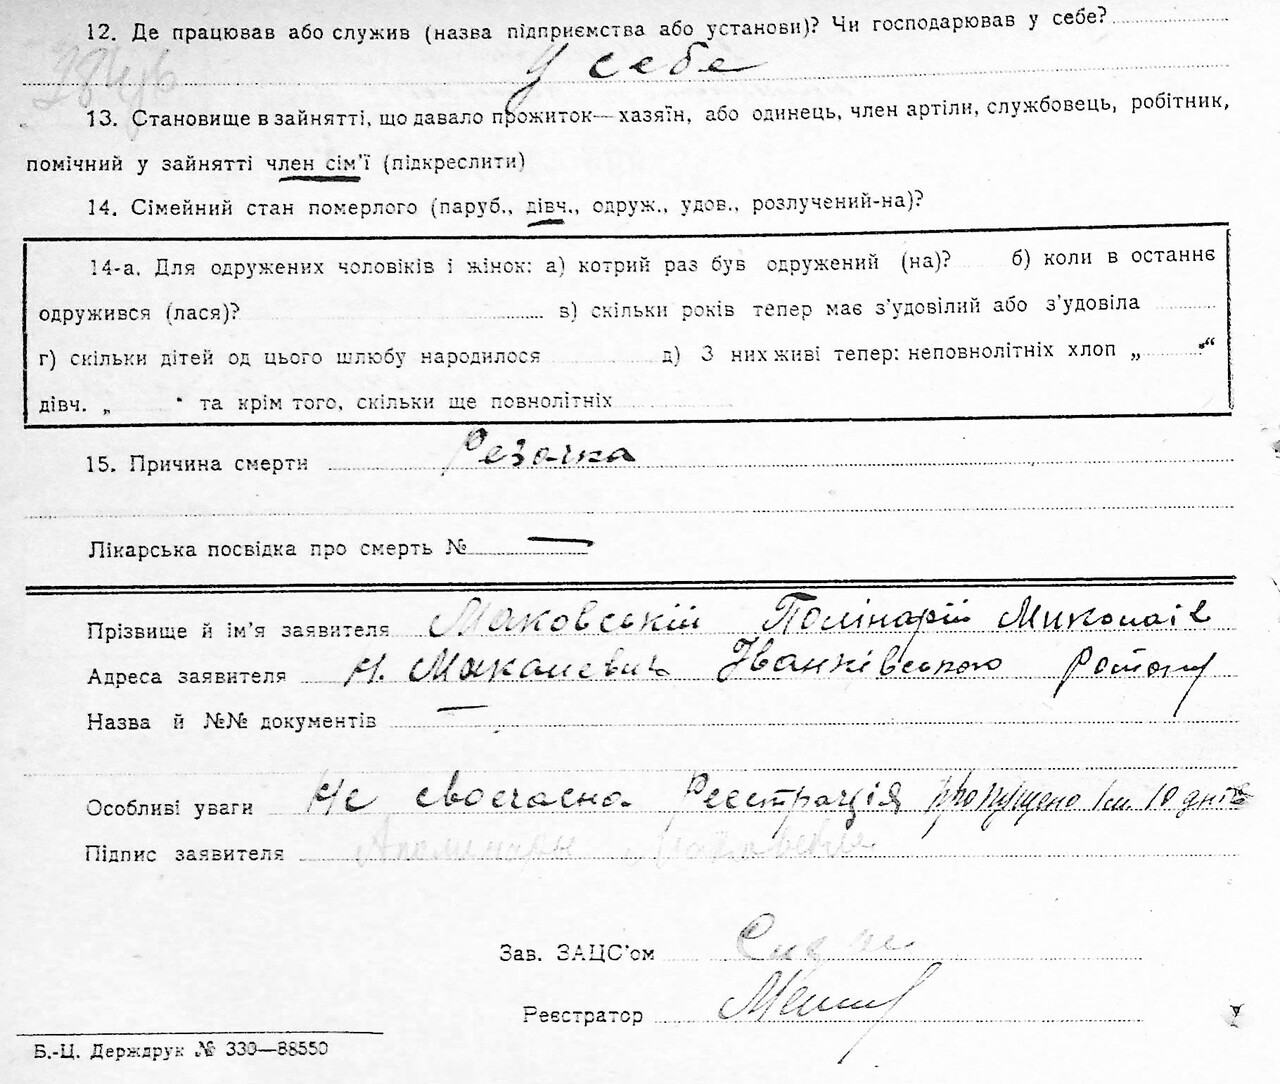 12. Де працював або служив (назва підприємства або установи)? Чи господарював у себе?
У себе
13. Становище в зайнятті, що давало прожиток—хазяїн, або одинець, член артіли, службовець, робітник,
помічний у зайнятті член сім'ї (підкреслити)
14. Сімейний стан померлого (паруб., дівч., одруж., удов., розлучений-на)?
14-а. Для одружених чоловіків і жінок: а) котрий раз був одружений (на)? б) коли в останнє
одружився (лася)? в) скільки років тепер має з'удовілий або з'удовіла
г) скільки дітей од цього шлюбу народилося д) З них живі тепер: неповнолітніх хлоп „ “
дівч. „ “ та крім того, скільки ще повнолітніх
15. Причина смерти Резачка
Лікарська посвідка про смерть № —
Прізвище й ім'я заявителя Маковській Полінарій Миколаів
Адреса заявителя Н. Макалевич Іванківського
Назва й №№ документів —
Особливі уваги Не своєчасна Реєстрація пропущено 1 м. 10 днів
Підпис заявителя
Зав. ЗАЦС'ом
Реєстратор
Б.-Ц. Держдрук № 330—88550